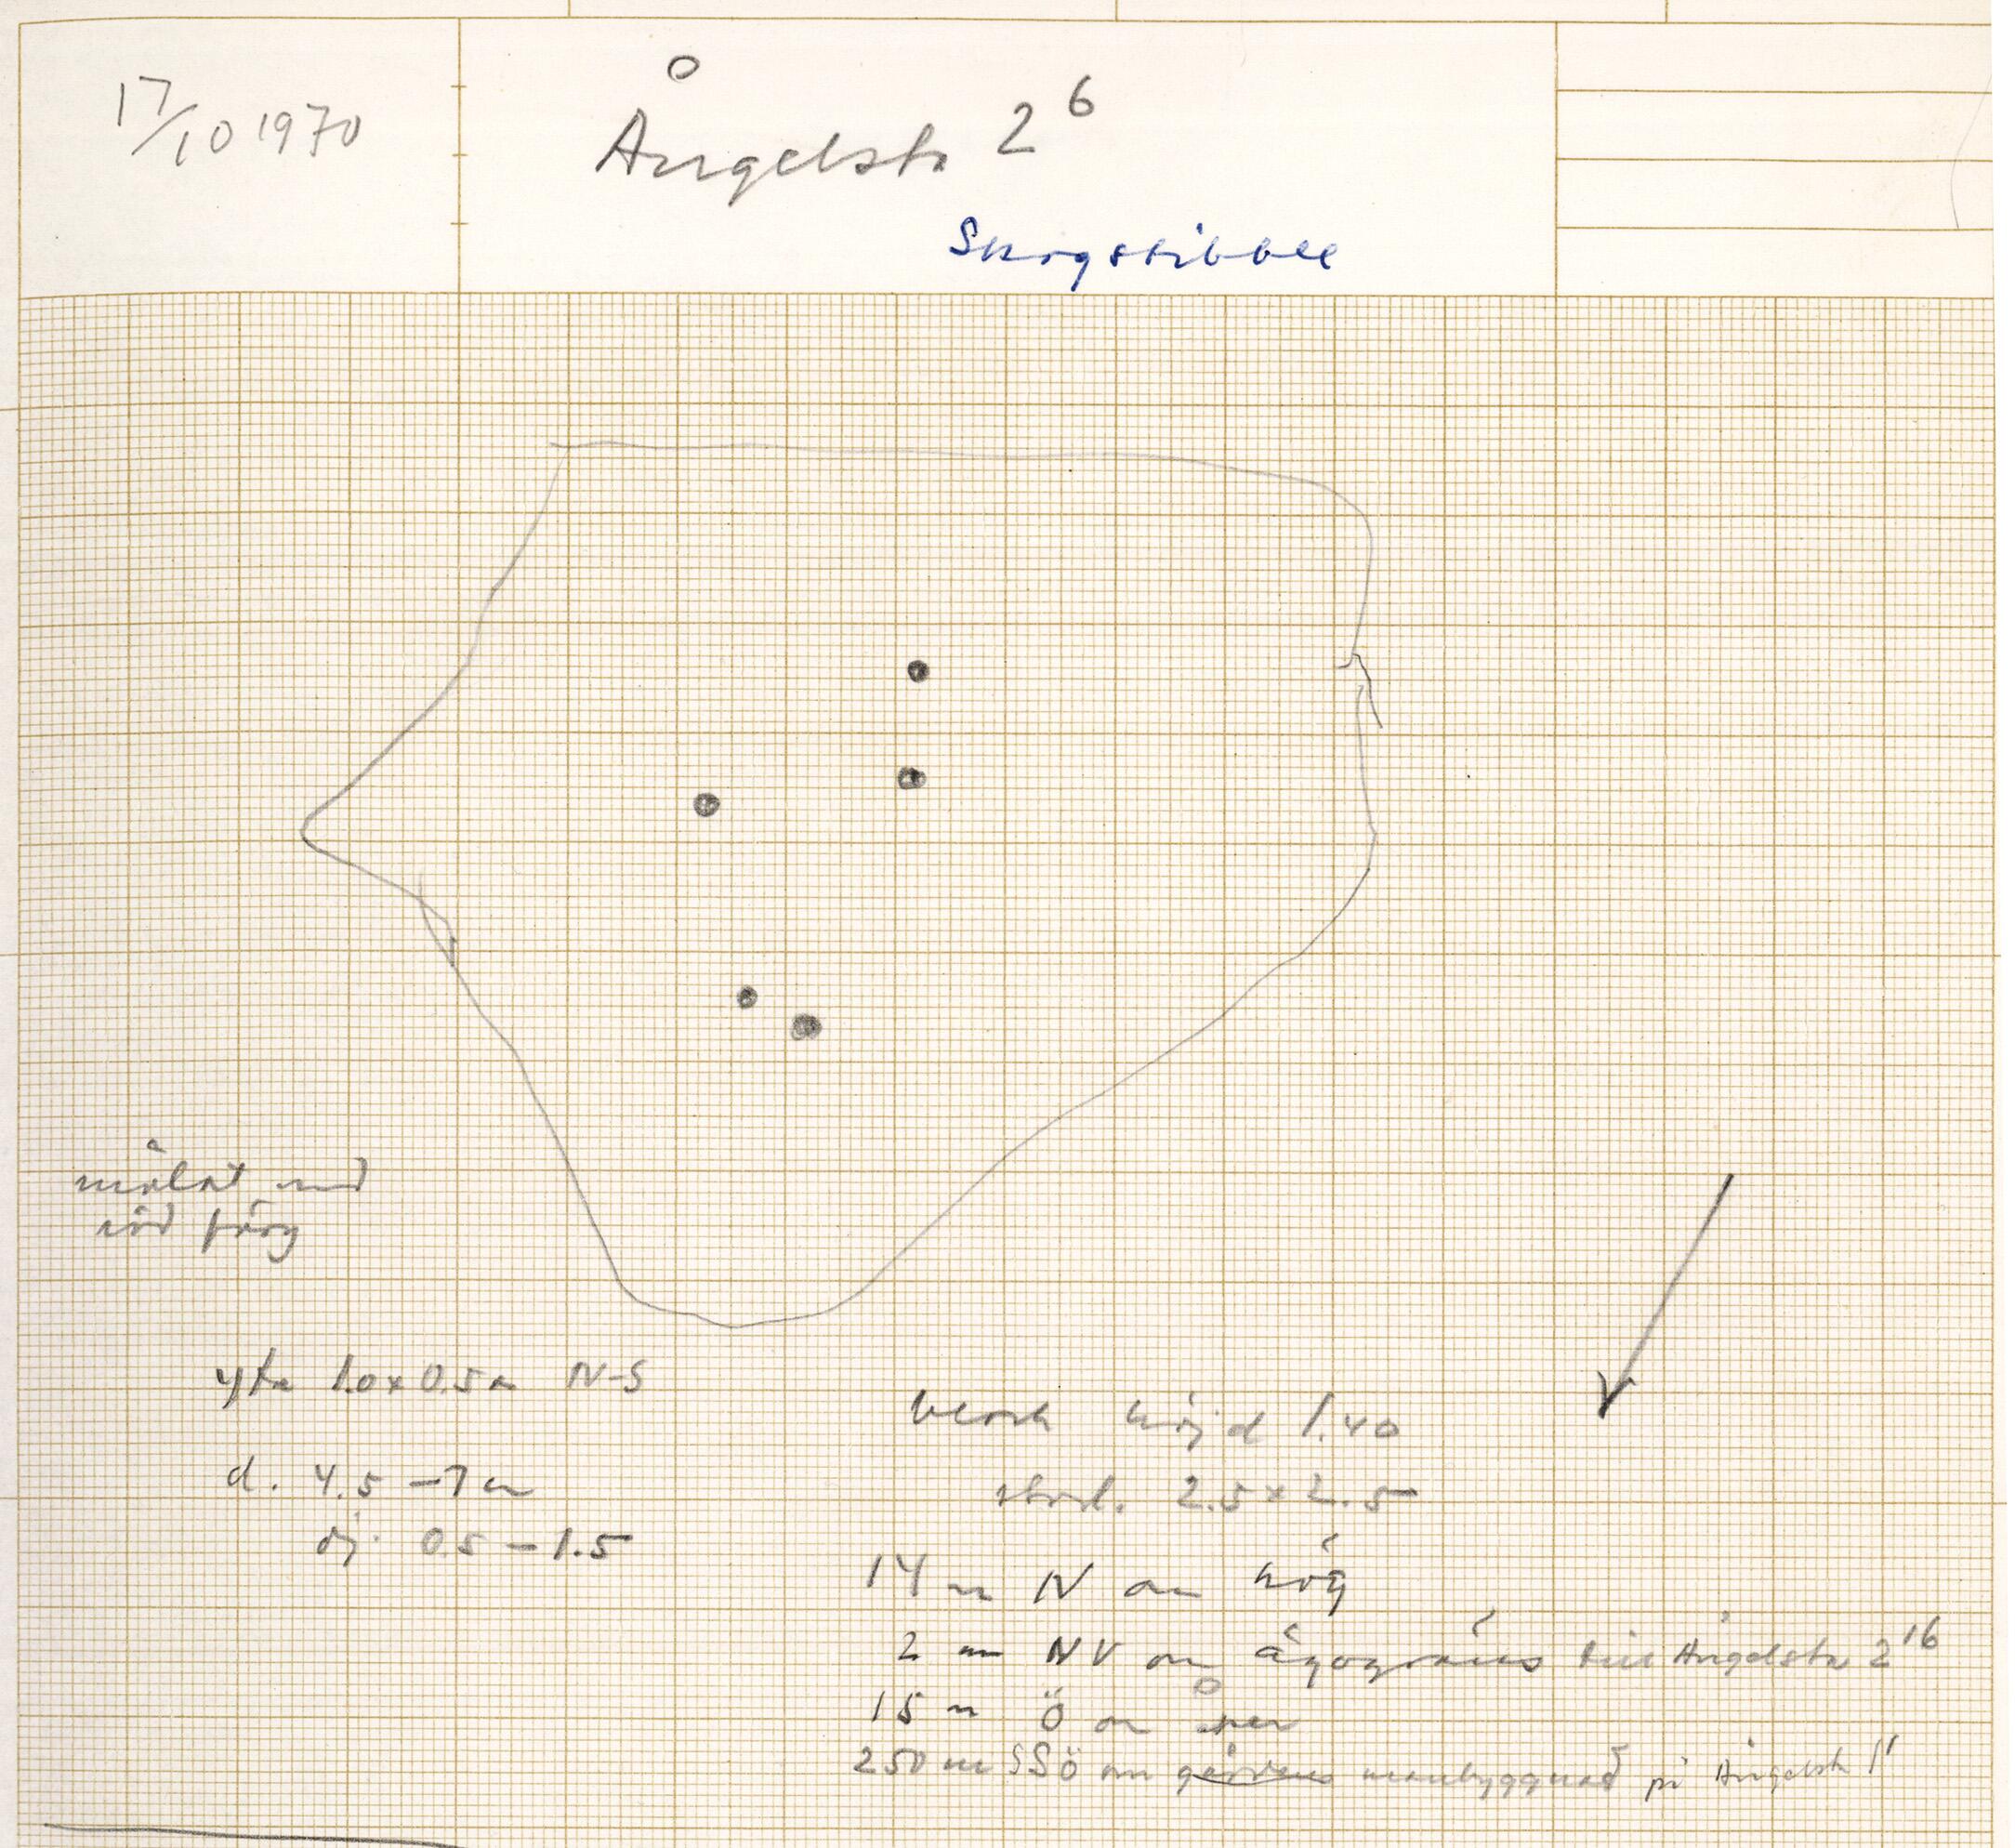 17/10 1970
Ångelsta 2⁶
Skogstibble
målat med
röd färg
yta 1.0 x 0.5 m N-S
d. 4.5 – 7 cm
dj. 0.5 – 1.5
block höjd 1.40
storl. 2.5 x 2.5
14 m N om hög
2 m NV om ägogräns till Ångelsta 2¹⁶
15 m Ö om åker
250 m SSÖ om gårdens manbyggnad på Ångelsta 1¹